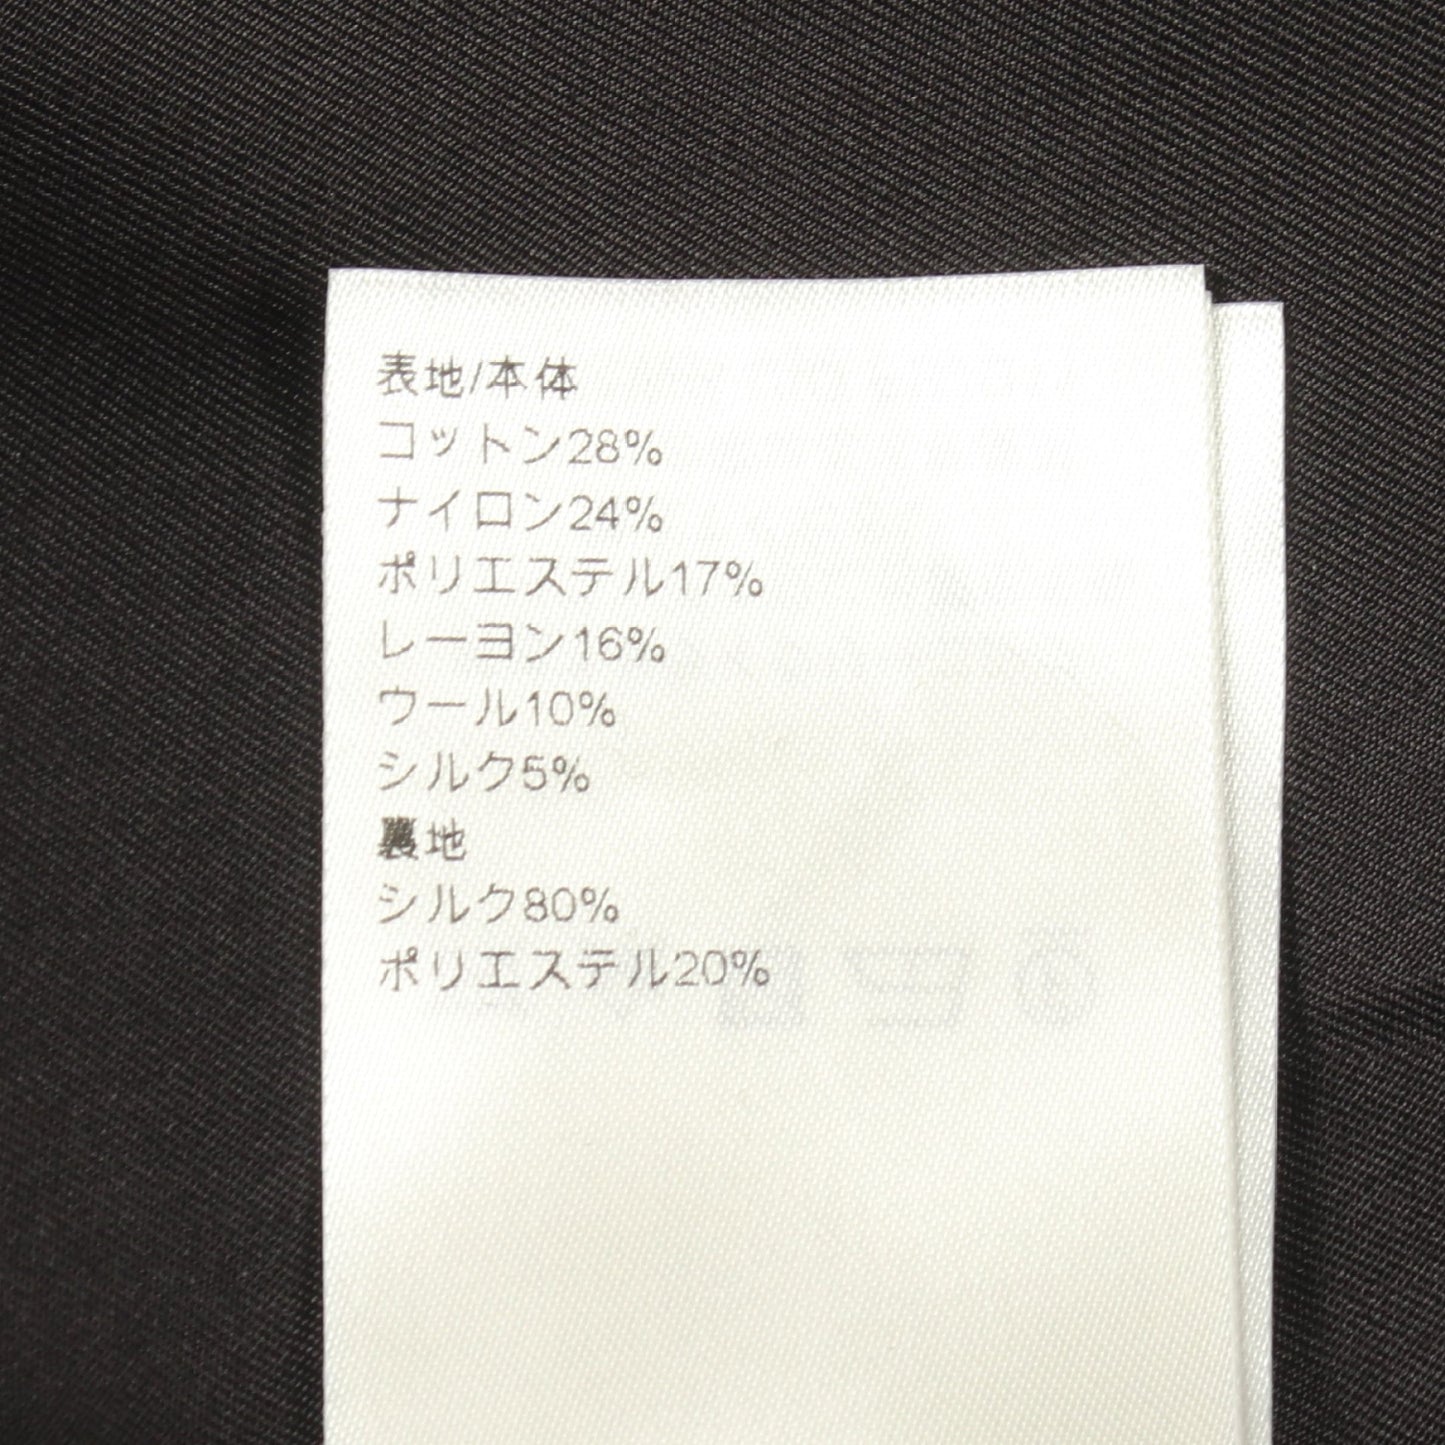 表地/本体
コットン28%
ナイロン24%
ポリエステル17%
レーヨン16%
ウール10%
シルク5%
裏地
シルク80%
ポリエステル20%